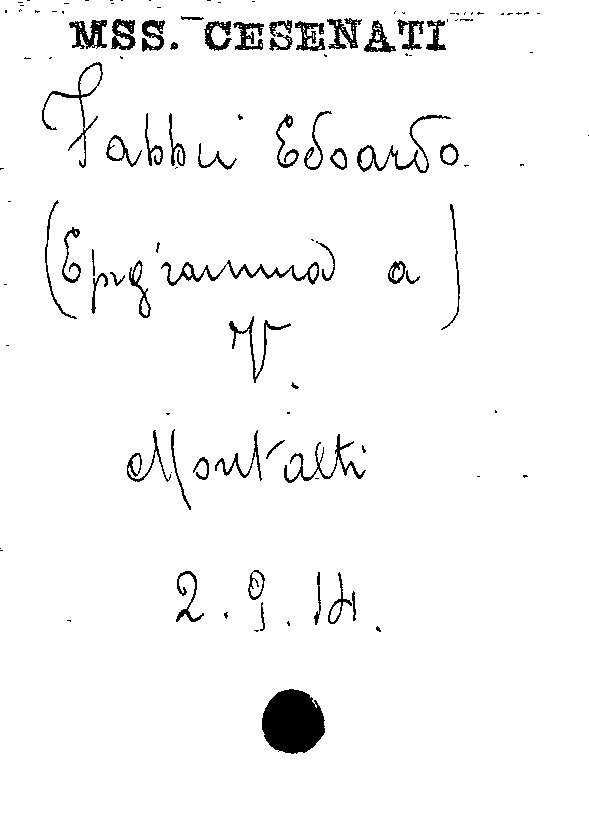 MSS. CESENATI
Fabbri Edoardo
(Epigramma a)
V.
Montalti
2.9.14.